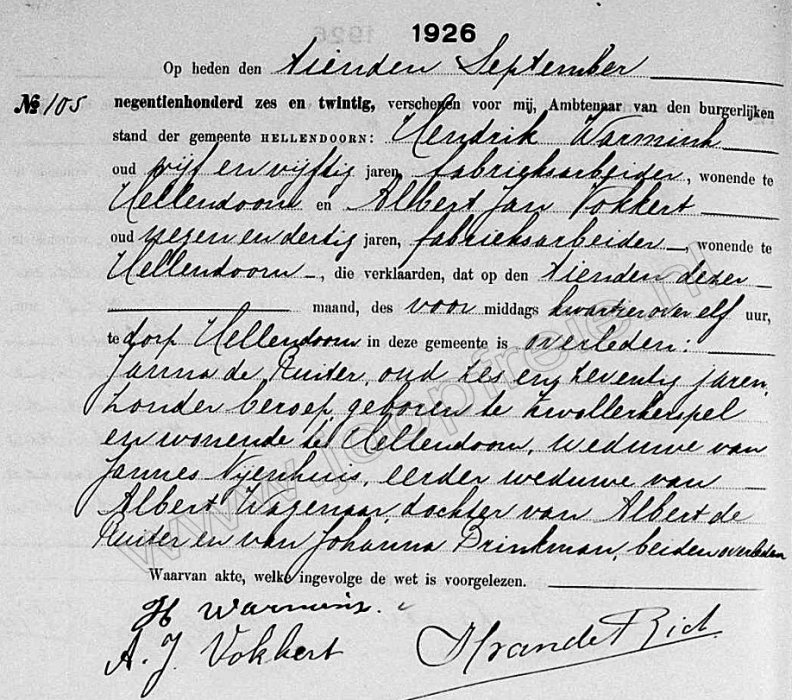 1926
Op heden den tienden September
№ 105 negentienhonderd zes en twintig, verschenen voor mij, Ambtenaar van den burgerlijken
stand der gemeente HELLENDOORN: Hendrik Warmink
oud vijf en vijftig jaren, fabrieksarbeider, wonende te
Hellendoorn en Albert Jan Vokkert
oud negen en dertig jaren, fabrieksarbeider, wonende te
Hellendoorn, die verklaarden, dat op den tienden dezer
maand, des voor middags kwartier over elf uur,
te dorp Hellendoorn in deze gemeente is overleden:
Janna de Ruiter, oud zes en zeventig jaren,
zonder beroep, geboren te Zwollerkerspel
en wonende te Hellendoorn, weduwe van
Jannes Nijenhuis, eerder weduwe van
Albert Wagenaar, dochter van Albert de
Ruiter en van Johanna Brinkman, beiden overleden
Waarvan akte, welke ingevolge de wet is voorgelezen.
H Warmink.
A. J. Vokkert
www.joopfreie.nl